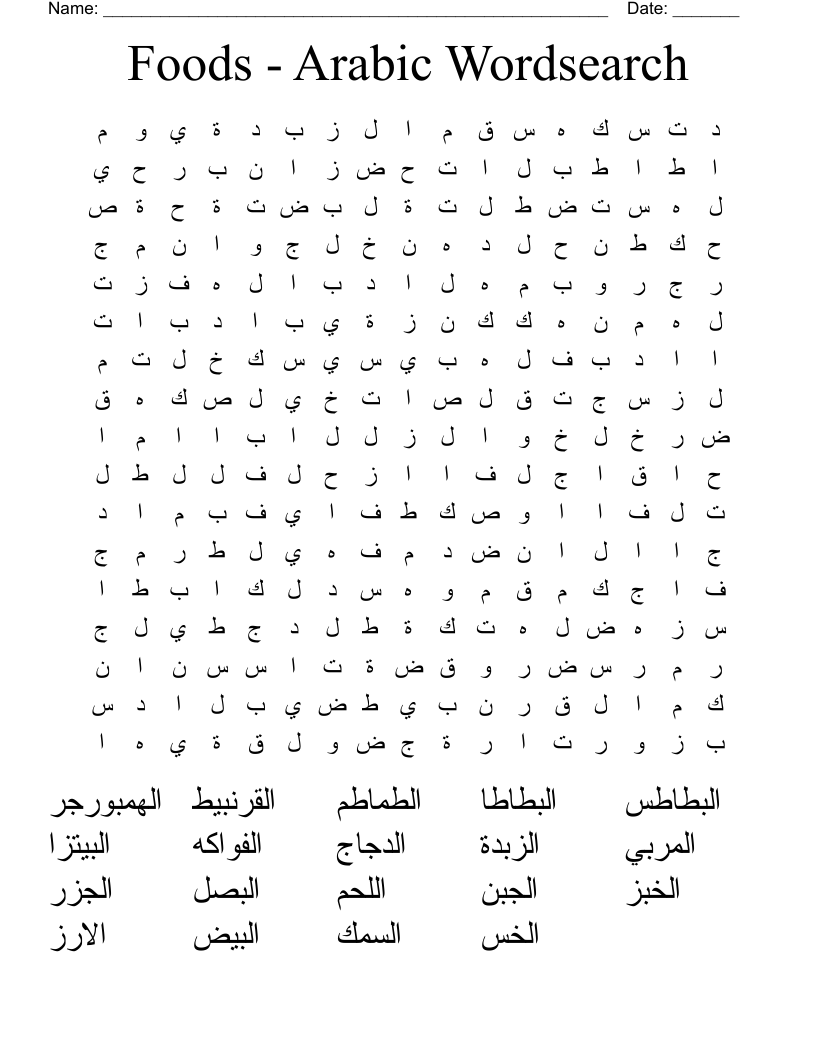 Name: ______________________________________________________ Date: _______
Foods - Arabic Wordsearch
د ت س ك ه س ق م ا ل ز ب د ة ي و م
ا ط ا ط ب ل ا ت ح ض ز ا ن ب ر ح ي
ل ه س ت ض ط ل ت ة ل ب ض ت ة ح ة ص
ح ك ط ن ح ل د ه ن خ ل ج و ا ن م ج
ر ج ر و ب م ه ل ا د ب ا ل ه ف ز ت
ل ه م ن ه ك ك ن ز ة ي ب ا د ب ا ت
ا ا د ب ف ل ه ب ي س ي س ك خ ل ت م
ل ز س ج ت ق ل ص ا ت خ ي ل ص ك ه ق
ض ر خ ل خ و ا ل ز ل ل ا ب ا ا م ا
ح ا ق ا ج ل ف ا ا ز ح ل ف ل ل ط ل
ت ل ف ا ا و ص ك ط ف ا ي ف ب م ا د
ج ا ا ل ا ن ض د م ف ه ي ل ط ر م ج
ف ا ج ك م ق م و ه س د ل ك ا ب ط ا
س ز ه ض ل ه ت ك ة ط ل د ج ط ي ل ج
ر م ر س ض ر و ق ض ة ت ا س س ن ا ن
ك م ا ل ق ر ن ب ي ط ض ي ب ل ا د س
ب ز و ر ت ا ر ة ج ض و ل ق ة ي ه ا
البطاطس البطاطا الطماطم القرنبيط الهمبورجر
المربي الزبدة الدجاج الفواكه البيتزا
الخبز الجبن اللحم البصل الجزر
الخس السمك البيض الارز